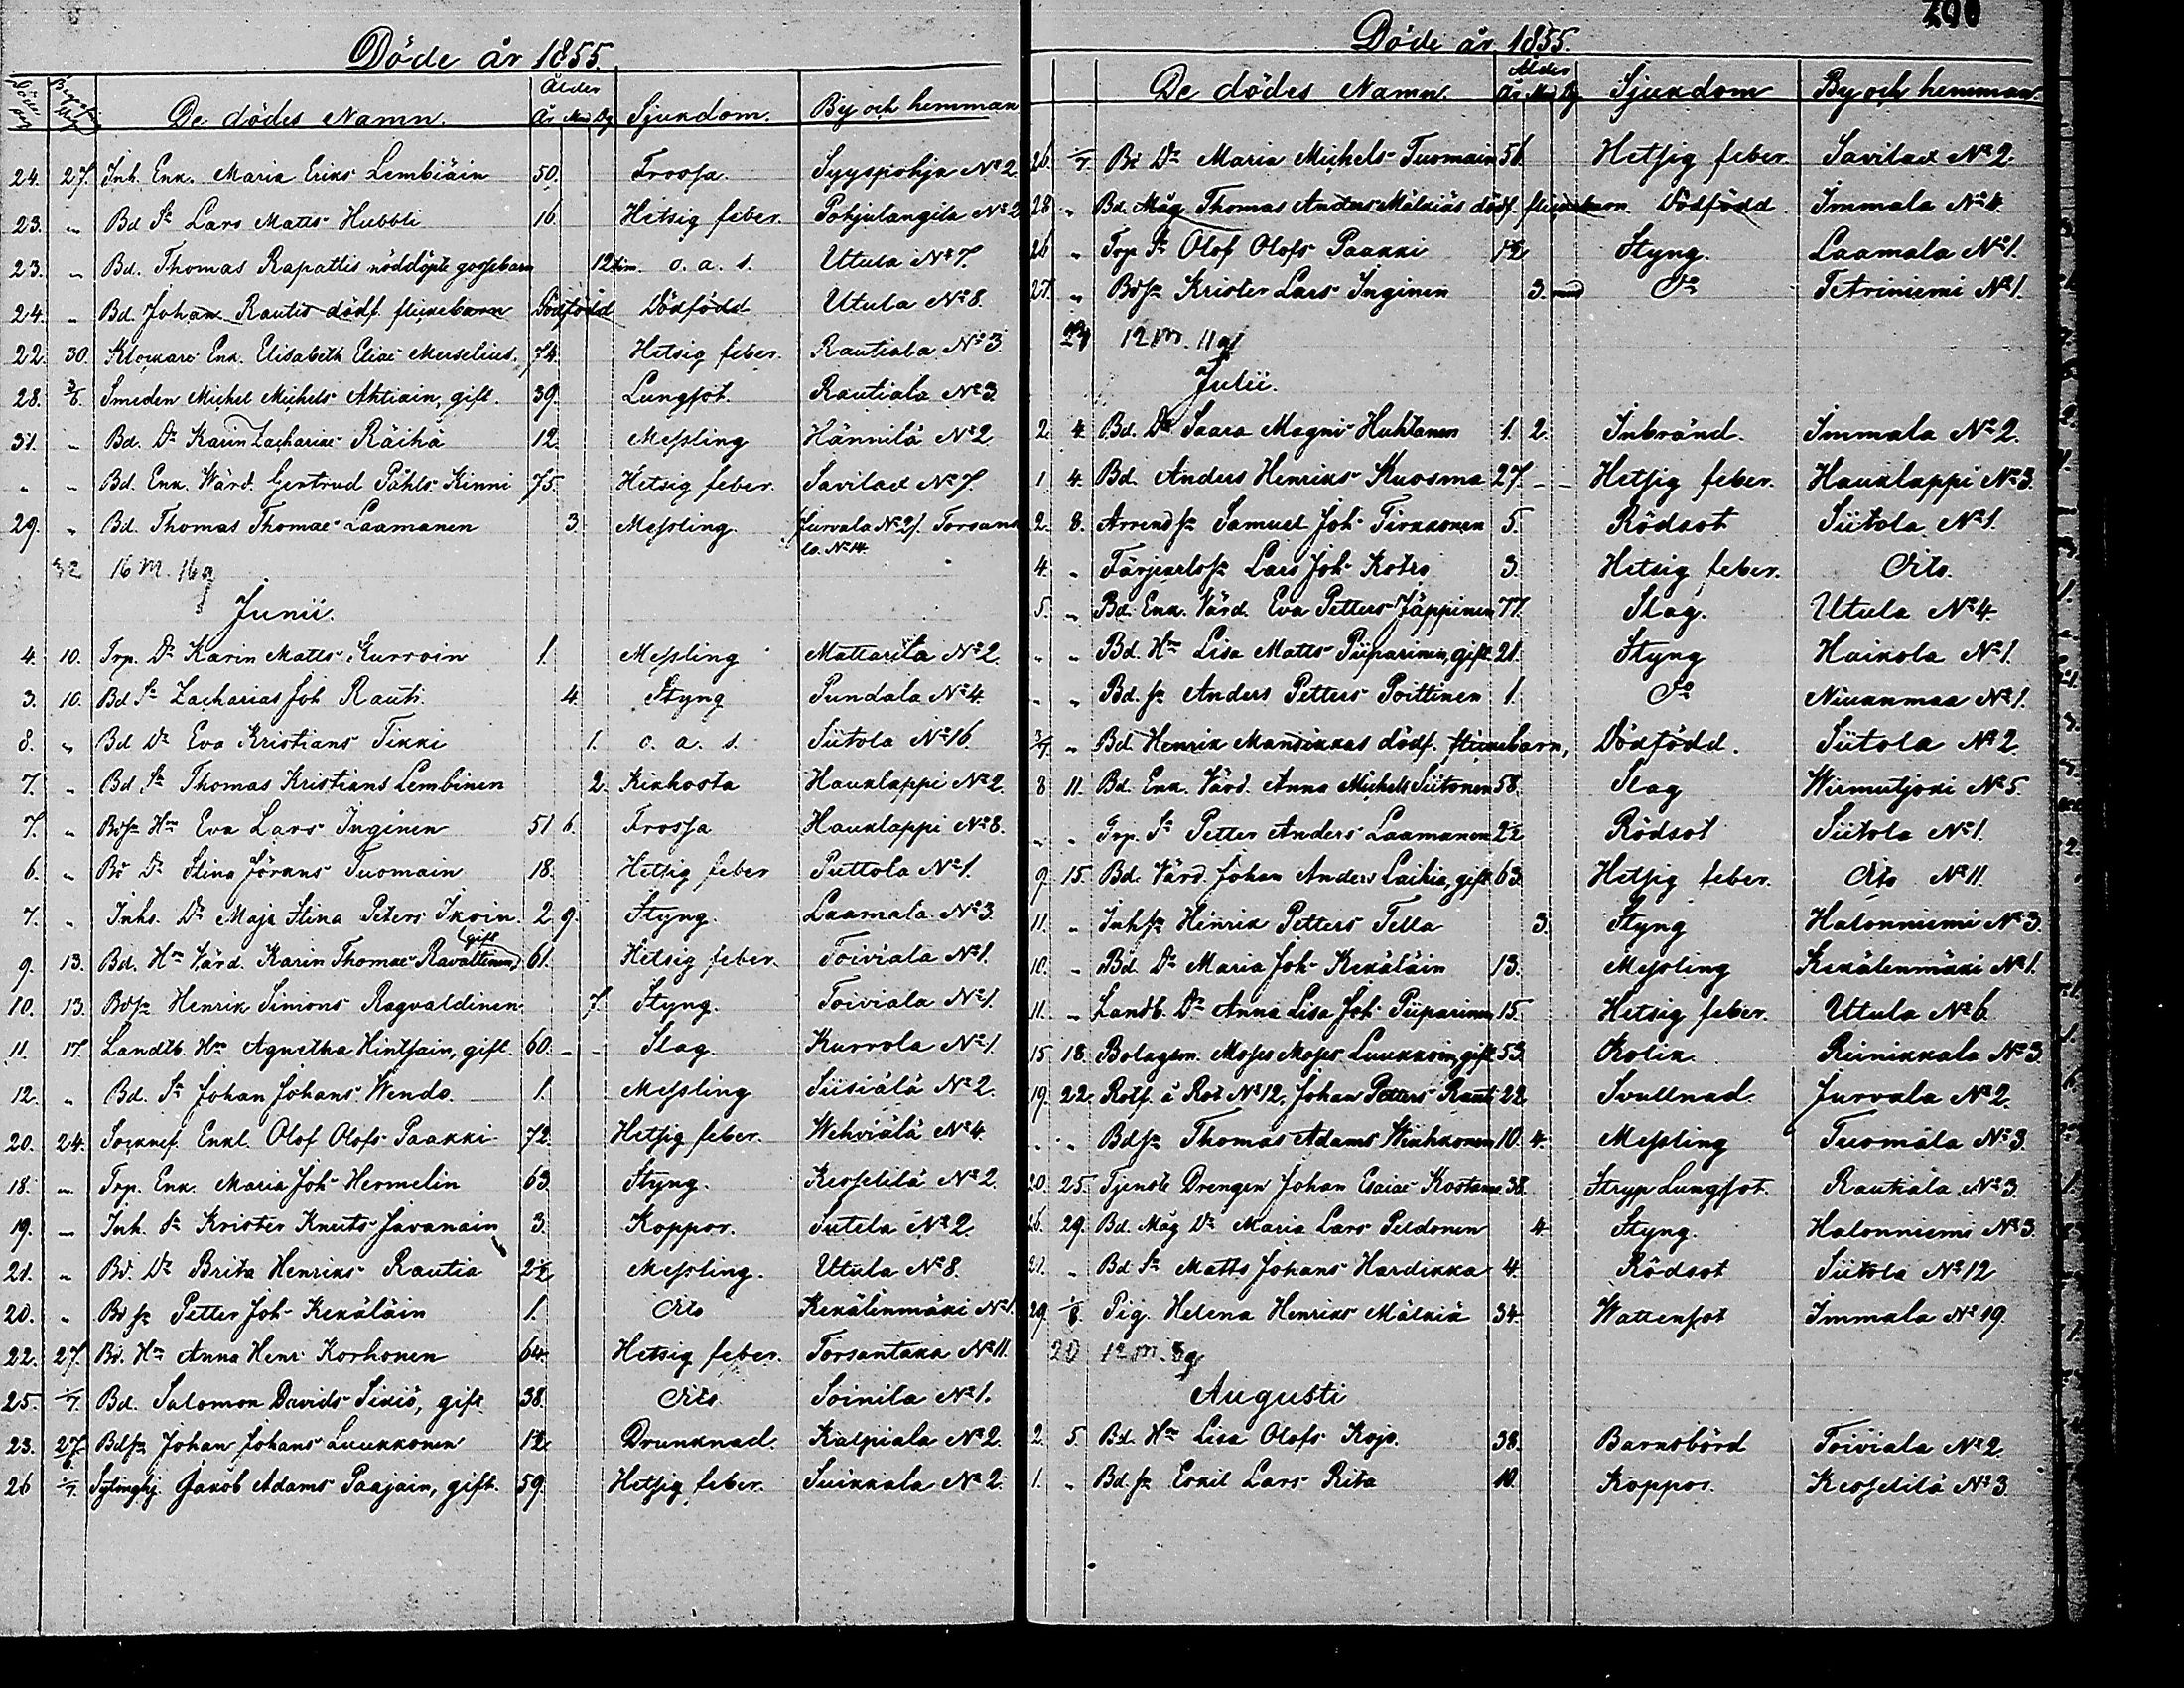 Döde år 1855.
Döde dag Begrafn. dag De dödes Namn. Ålder År Mån Dg Sjukdom. By och hemman
24. 27. Inh. Enk. Maria Eriks Lembiäin 50. Trossa. Syyspohja No 2
23. " Bd Sn Lars Matts Hubbli 16. Hetsig feber. Pohjalangila No 2
23. " Bd. Thomas Rapattis nöddöpte gossebarn 12 tim. o. a. s. Utula No 7.
24. " Bd. Johan Rautis dödf. flickebarn Dödfödd Dödfödd Utula No 8.
22. 30. Klockare Enk. Elisabeth Eliae Merselius. 74. Hetsig feber. Rautiala No 3.
28. 3/6. Smeden Michel Michels Ahtiain, gift. 39. Lungsot. Rautiala No 3
31. " Bd. Dr Karin Zachariae Räihä 12. Messling Hännilä No 2
" " Bd. Enk. Wärd. Gertrud Påhls Kinni 75. Hetsig feber. Savilax No 7.
29. " Bd. Thomas Thomae Laamanen 3. Messling. Jurvala No 2/. Torsans
la. No 14.
32 16 m. 16 q
Junii.
4. 10. Trp. Dr Karin Matts Gurroin 1. Messling Mattarila No 2.
3. 10. Bd Sn Zacharias Joh Rauti. 4. Styng Pundala No 4.
8. " Bd Dr Eva Kristians Tikki 1. o. a. s. Siitola No 16.
7. " Bd Sn Thomas Kristians Lembinen 2. Kikhosta Hauklappi No 2.
7. " Bdsn Hru Eva Lars Inginen 51 6. Trossa Hauklappi No 8.
6. " Bd Dr Stina Jörans Tuomain 18. Hetsig feber Puttola No 1.
7. " Inhs. Dr Maja Stina Peters Ikoin. 2 9. Styng. Laamala No 3.
9. 13. Bd. Hru Värd. Karin Thomae Ravattinen gift 61. Hetsig feber. Toiviala No 1.
10. 13. Bdsn Henrik Simons Ragvaldinen 7. Styng. Toiviala No 1.
11. 17. Landtb. Hru Agnetha Hintsain, gift. 60. - - Slag. Kurrola No 1.
12. " Bd. Sn Johan Johans Wendo. 1. Messling Siisiälä No 2.
20. 24. Socknef. Enkl. Olof Olofs Paakki 72. Hetsig feber. Wehviälä No 4.
18. " Trp. Enk. Maria Joh Hermelin 63 Styng. Kesselilä No 2.
19. " Inh. Sn Krister Knuts Javanain 3. Koppor. Sutela No 2.
21. " Bd. Dr Brita Henriks Rautia 2½ Messling. Utula No 8.
20. " Bd sn Petter Joh Kekäläin 1. dito Kekälenmäki No 1.
22. 27. Bd. Hru Anna Henr. Korhonen 64. Hetsig feber. Torsantaka No 11.
25. 1/7. Bd. Salomon Davids Sikiö, gift. 38. dito Soinila No 1.
23. 27/6. Bdsn Johan Johans Luukkonen 1½ Drunknad. Kalpiala No 2.
26 1/7. Sytinghj. Jakob Adams Paajain, gift. 59. Hetsig feber. Suikkala No 2.
290
Döde år 1855.
De dödes Namn. Ålder År Mån Dg Sjukdom By och hemman.
26. 1/7. Bd Dr Maria Michels Tuomain 56. Hetsig feber. Savilax No 2.
28 " Bd. Måg Thomas Anders Mälkiäs dödf. flickebarn. Dödfödd Immala No 4.
26 " Trp Sn Olof Olofs Paakki 1½ Styng. Laamala No 1.
27. " Bdsn Krister Lars Inginen 3. mnd Do Tetriniemi No 1.
12 m. 11 q
Julii.
2. 4. Bd. Dr Saara Magni Huhtanen 1. 2. Inbränd. Immala No 2.
1. 4. Bd. Anders Henriks Kuosma 27. - - Hetsig feber. Hauklappi No 3.
2. 8. Arrendsn Samuel Joh Tirkkonen 5. Rödsot Siitola No 1.
4. " Färjkarlssn Lars Joh Kotro 3. Hetsig feber. dito.
5. " Bd. Enk. Värd. Eva Petters Jäppinen 77. Slag. Utula No 4.
" " Bd. Hru Lisa Matts Piiparinen, gift 21. Styng Haikola No 1.
" " Bd. sn Anders Petters Poittinen 1. Do Niukanmaa No 1.
3/7. " Bd. Henrik Mansikkas dödf. flickebarn, Dödfödd. Siitola No 2.
8 11. Bd. Enk. Värd. Anna Michels Siitonen 58. Slag Wirmutjoki No 5.
" " Trp. Sn Petter Anders Laamanen 2½ Rödsot Siitola No 1.
9. 15. Bd. Värd. Johan Anders Laihia, gift 63. Hetsig feber. dito No 11.
11. " Inhsn Hinrik Petters Tella 3. Styng Halonniemi No 3.
10. " Bd. Dr Maria Joh Kekäläin 13. Messling Kekälenmäki No 1.
11. " Landb. Dr Anna Lisa Joh Piiparinen 15. Hetsig feber. Uttula No 6
15 18. Bolagsm. Moses Moses Luukkoin, gift 53. Kolik. Reinikkala No 3.
19. 22. Rotf. å Rot No 12, Johan Petters Rauti 22 Svullnad. Jurvala No 2.
" " Bdsn Thomas Adams Winhkonen 10. 4. Messling Tuomala No 3.
20. 25. Tjenste Drengen Johan Esaiae Kostama 38. Stryp Lungsot. Rautiala No 3.
26. 29. Bd. Måg Dr Maria Lars Peldonen 4. Styng. Halonniemi No 3.
21. " Bd Sn Matts Johans Hardikka 4. Rödsot Siitola No 12
29. 1/8. Pig. Helena Henriks Mälkiä 34. Wattensot Immala No 19.
20 12 m. 8 q
Augusti
2. 5. Bd. Hru Lisa Olofs Kojo. 38. Barnsbörd Toiviala No 2.
1. " Bd. sn Eskil Lars Rita 10. Koppor. Kesselilä No 3.